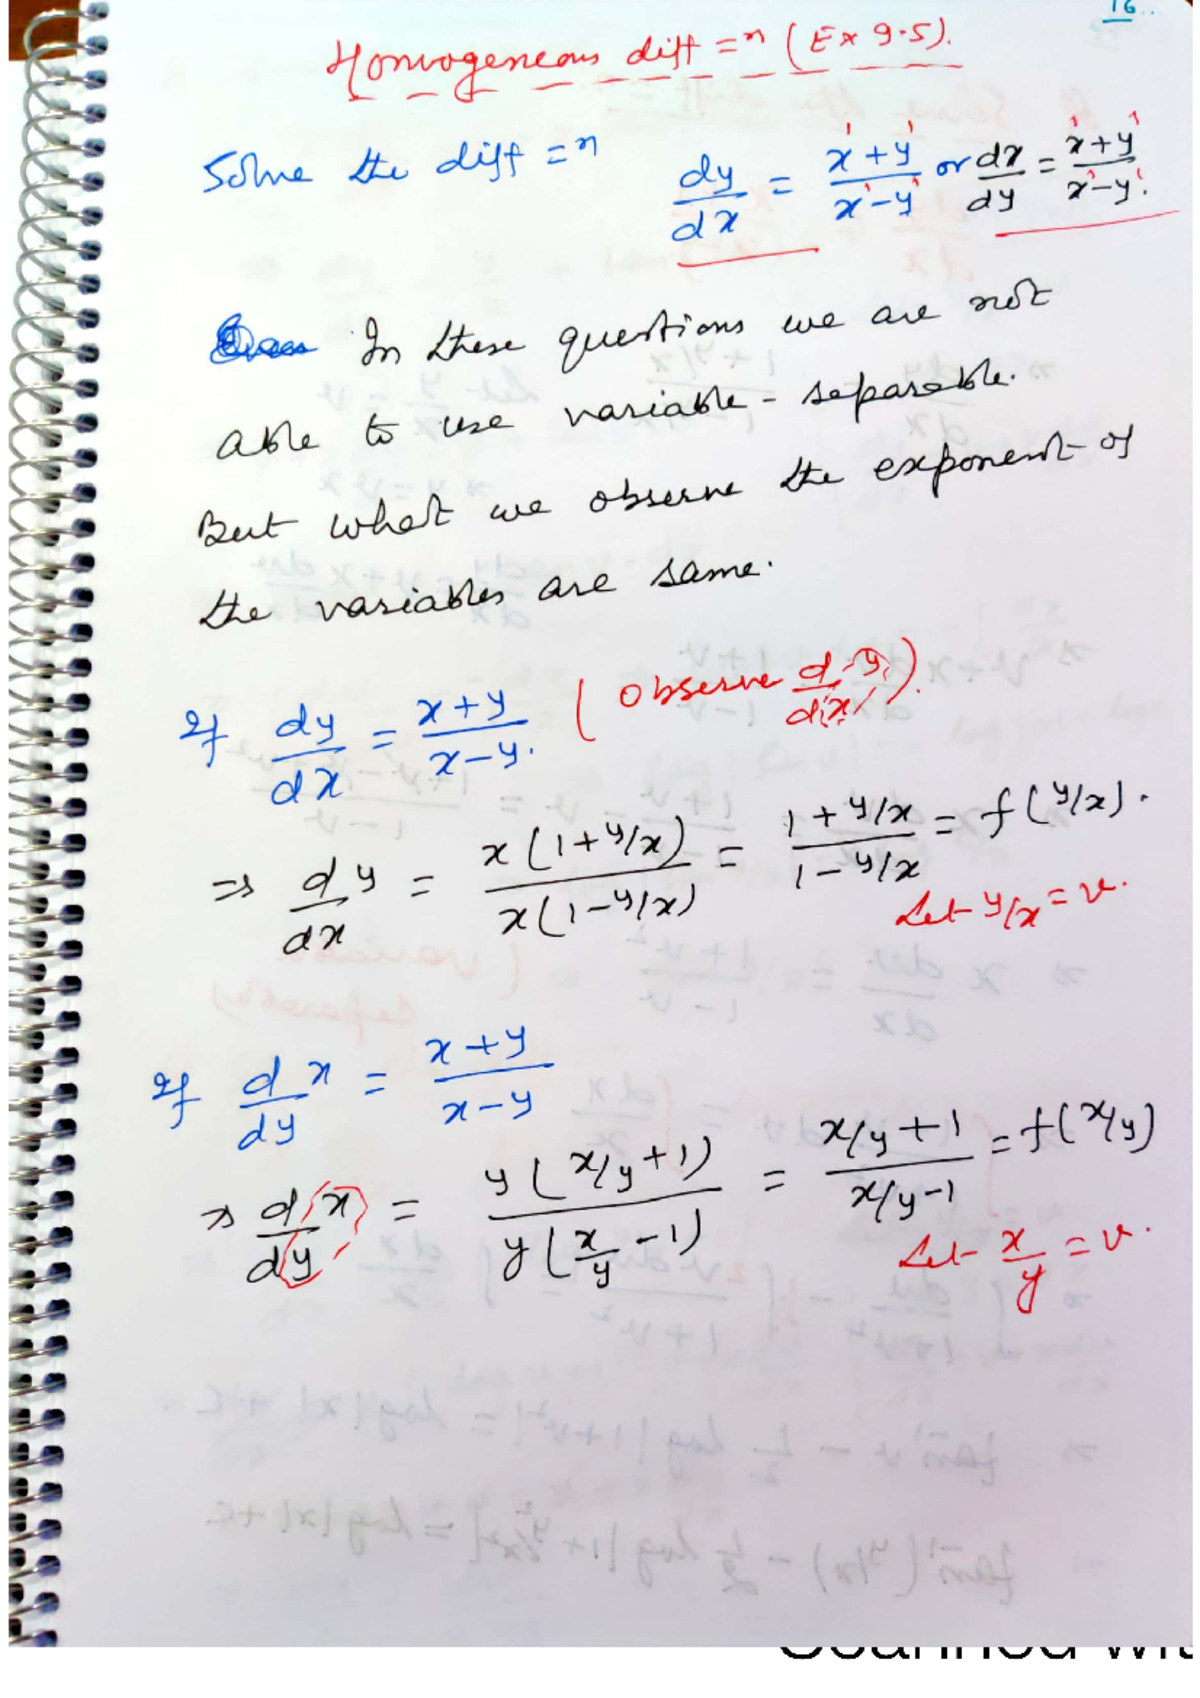 16
Homogeneous diff =n (Ex 9.5).
Solve the diff =n dy/dx = x¹+y¹/x¹-y¹ or dx/dy = x¹+y¹/x¹-y¹.
In these questions we are not
able to use variable - separable.
But what we observe the exponent of
the variables are same.
If dy/dx = x+y/x-y. (Observe dy/dx).
⇒ dy/dx = x(1+y/x)/x(1-y/x) = 1+y/x/1-y/x = f(y/x).
Let y/x = v.
If dx/dy = x+y/x-y
⇒ dx/dy = y(x/y+1)/y(x/y-1) = x/y+1/x/y-1 = f(x/y)
Let x/y = v.